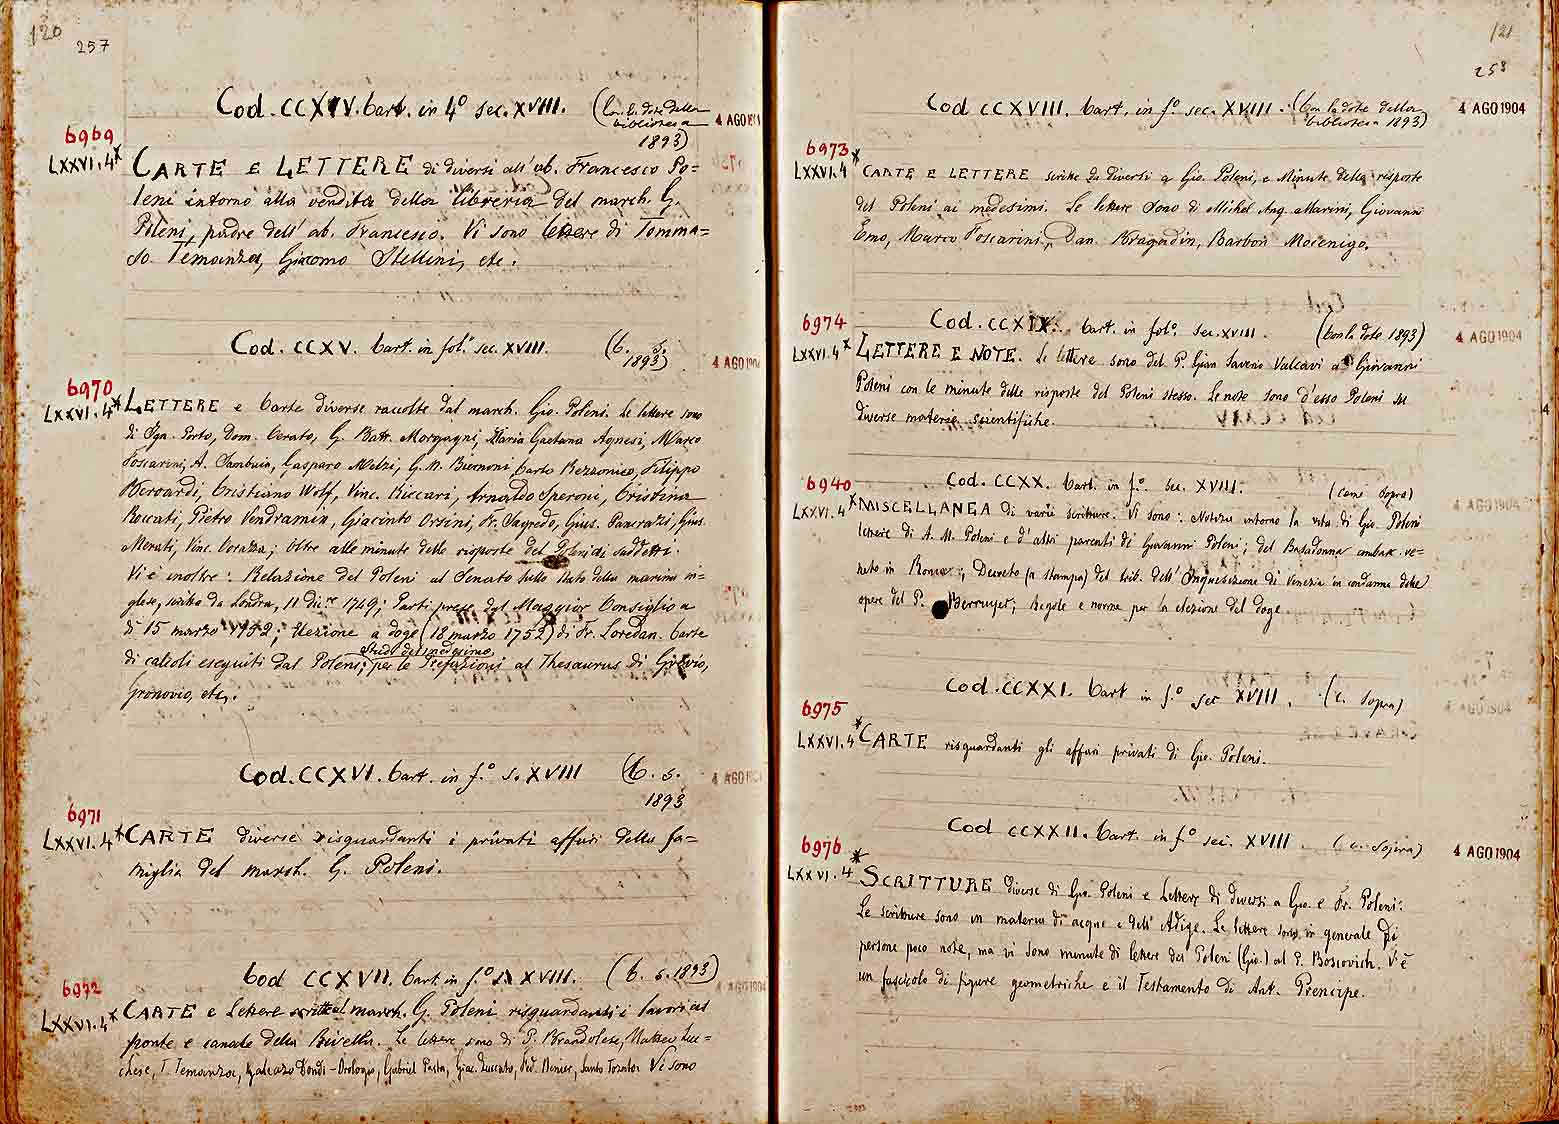 120
257
Cod. CCXIV. Cart. in 4º sec. XVIII. (Con la dote della
biblioteca
1893)
4 AGO 1904
6969
LXXVI.4*
CARTE E LETTERE di diversi all'ab. Francesco Po=
leni intorno alla vendita della libreria del march. G.
Poleni, padre dell'ab. Francesco. Vi sono lettere di Tomma=
so Temanza, Giacomo Stellini, etc.
Cod. CCXV. Cart. in fol.º sec. XVIII. (C. s.
1893)
4 AGO 1904
6970
LXXVI.4*
LETTERE e Carte diverse raccolte dal march. Gio. Poleni. Le lettere sono
di Ign. Porto, Dom. Cerato, G. Batt. Morgagni, Maria Gaetana Agnesi, Marco
Foscarini, A. Sambuca, Gasparo Melzi, G. M. Carlo Rezzonico, Filippo
Beroardi, Cristiano Wolf, Vinc. Riccari, Arnaldo Speroni, Cristina
Roccati, Pietro Vendramin, Giacinto Orsini, Fr. Sagredo, Gius. Pancrazi, Gius.
Merati, Vinc. Corazza; oltre alle minute delle risposte del Poleni ai suddetti.
Vi è inoltre: Relazione del Poleni al Senato sullo stato della marina in=
glese, scritta da Londra, 11 dic.re 1749; Parti prese dal Maggior Consiglio a
di 15 marzo 1752; Elezione a doge (18 marzo 1752) di Fr. Loredan. Carte
Studi del medesimo
di calcoli eseguiti dal Poleni; per le Prefazioni al Thesaurus di Grevio,
Gronovio, etc.
Cod. CCXVI. Cart. in f.º s. XVIII (C. s.
1893
4 AGO 1904
6971
LXXVI.4*
CARTE diverse risguardanti i privati affari della fa=
miglia del march. G. Poleni.
Cod CCXVII. Cart. in f.º s. XVIII. (C. s. 1893)
4 AGO 1904
6972
LXXVI.4*
CARTE e Lettere scritte al march. G. Poleni risguardanti i lavori al
ponte e canale della Bivella. Le lettere sono di P. Brandolese, Matteo Luc=
chese, T. Temanza, Galeazo Dondi-Orologio, Gabriel Pasta, Giac. Zuccato, Fed. Renier, Santo Vi sono
121
258
Cod CCXVIII. Cart. in f.º sec. XVIII. (Con la dote della
biblioteca 1893)
4 AGO 1904
6973
LXXVI.4*
CARTE E LETTERE scritte da diversi a Gio. Poleni, e Minute delle risposte
del Poleni ai medesimi. Le lettere sono di Michel Ang. Marini, Giovanni
Emo, Marco Foscarini, Dan. Bragadin, Barbon Mocenigo.
Cod. CCXIX. Cart. in fol.º sec. XVIII. (Con la dote 1893)
4 AGO 1904
6974
LXXVI.4*
LETTERE E NOTE. Le lettere sono del P. Gian Saverio Valcavi a Giovanni
Poleni con le minute delle risposte del Poleni stesso. Le note sono d'esso Poleni su
diverse materie scientifiche.
Cod. CCXX. Cart. in f.º sec. XVIII. (come sopra)
4 AGO 1904
6940
LXXVI.4*
MISCELLANEA di varie scritture. Vi sono: Notizie intorno la vita di Gio. Poleni
lettere di A. M. Poleni e d'altri parenti di Giovanni Poleni; del Badadonna ambasc. ve=
neto in Roma; Decreto (a stampa) del trib. dell'Inquisizione di Venezia in condanna delle
opere del P. Berruyer; Regole e norme per la elezione del doge.
Cod. CCXXI. Cart in f.º sec XVIII. (c. sopra)
4 AGO 1904
6975
LXXVI.4*
CARTE risguardanti gli affari privati di Gio. Poleni.
Cod CCXXII. Cart. in f.º sec. XVIII. (c. sopra)
4 AGO 1904
6976
LXXVI.4*
SCRITTURE diverse di Gio. Poleni e Lettere di diversi a Gio. e Fr. Poleni:
Le scritture sono in materia di acque e dell'Adige. Le lettere sono in generale di
persone poco note, ma vi sono minute di lettere del Poleni (Gio.) al P. Boscovich. Vi è
un fascicolo di figure geometriche e il Testamento di Ant. Prencipe.